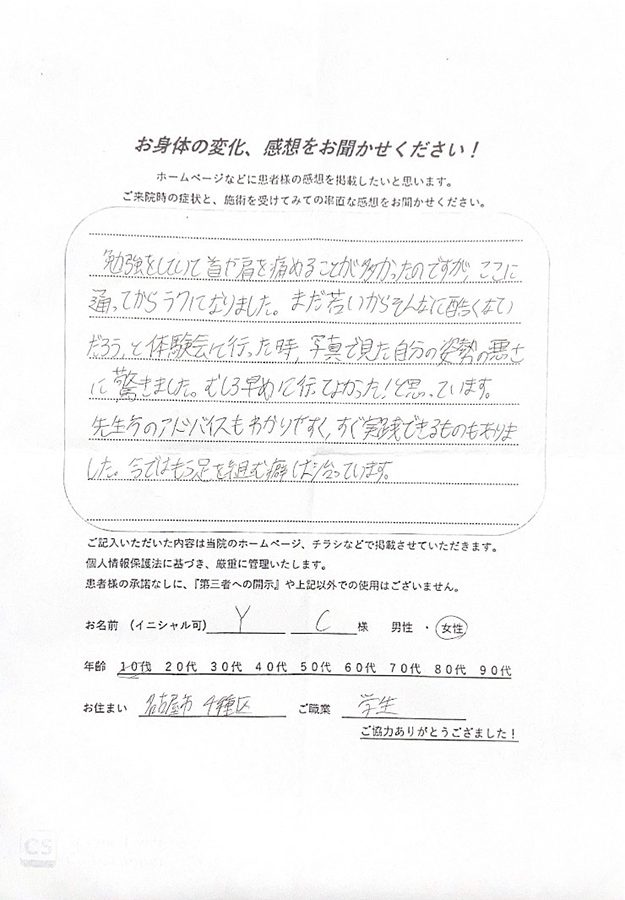 お身体の変化、感想をお聞かせください！
ホームページなどに患者様の感想を掲載したいと思います。
ご来院時の症状と、施術を受けてみての率直な感想をお聞かせください。
勉強をしていて首や肩を痛めることが多かったのですが、ここに
通ってからラクになりました。まだ若いからそんなに酷くない
だろう、と体験会に行った時、写真で見た自分の姿勢の悪さ
に驚きました。むしろ早めに行ってよかった！と思っています。
先生方のアドバイスもわかりやすく、すぐ実践できるものもありま
した。今ではもう足を組む癖は治っています。
ご記入いただいた内容は当院のホームページ、チラシなどで掲載させていただきます。
個人情報保護法に基づき、厳重に管理いたします。
患者様の承諾なしに、『第三者への開示』や上記以外での使用はございません。
お名前 (イニシャル可) Y C 様 男性 ・ 女性
年齢 10代 20代 30代 40代 50代 60代 70代 80代 90代
お住まい 名古屋市 千種区 ご職業 学生
ご協力ありがとうござました！
CS